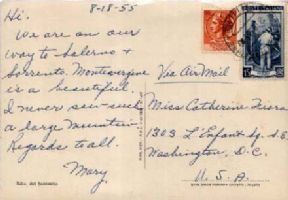 8-18-55
Hi,
We are on our
way to Salerno +
Sorrento. Montevergine
is a beautiful.
I never saw such
a large mountain
Regards to all.
Mary
Via Air Mail
POSTE ITALIANE
Miss Catherine
1303 L'Enfant Sq. S.E.
Washington, D.C.
U.S.A.